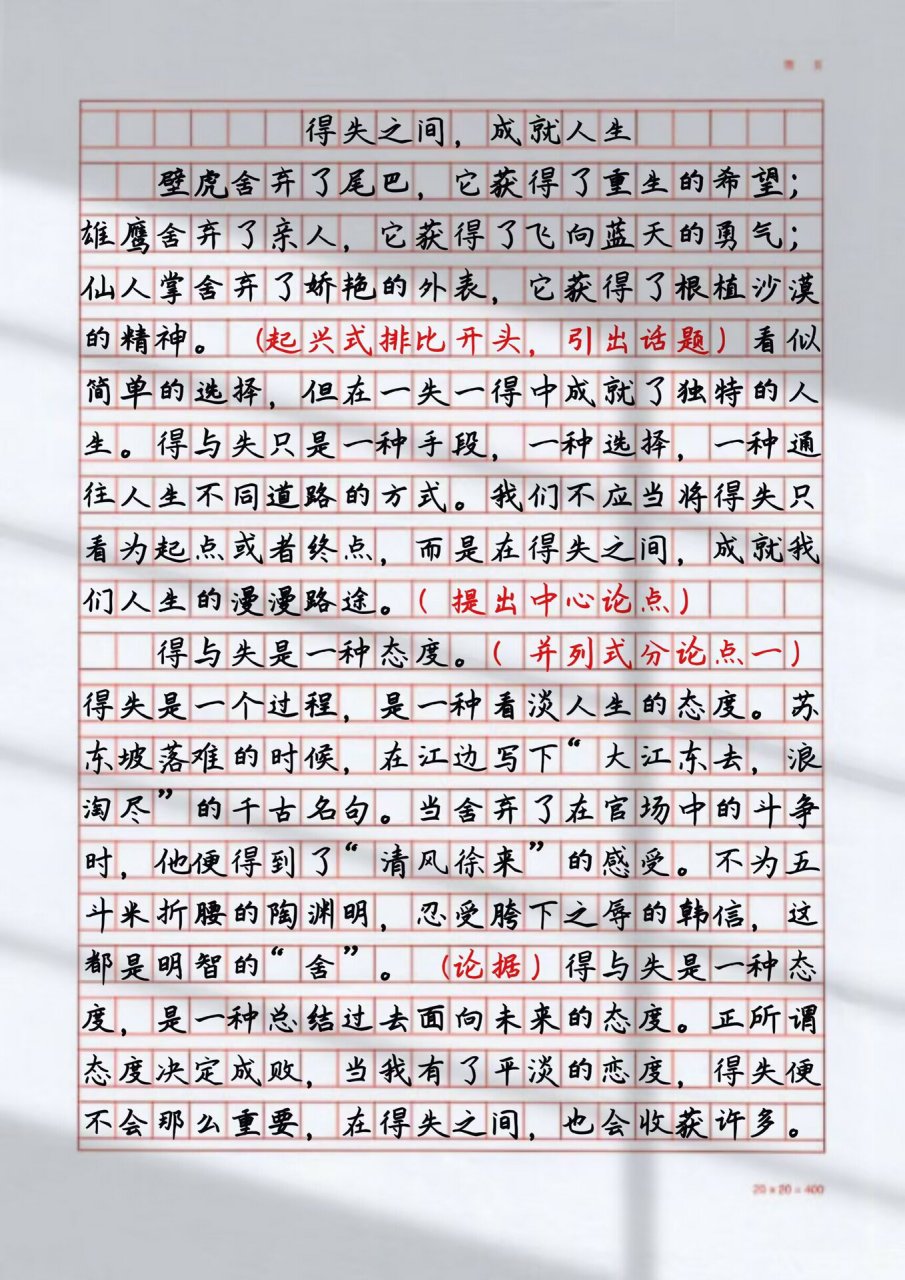 得失之间，成就人生
壁虎舍弃了尾巴，它获得了重生的希望；
雄鹰舍弃了亲人，它获得了飞向蓝天的勇气；
仙人掌舍弃了娇艳的外表，它获得了根植沙漠
的精神。（起兴式排比开头，引出话题）看似
简单的选择，但在一失一得中成就了独特的人
生。得与失只是一种手段，一种选择，一种通
往人生不同道路的方式。我们不应当将得失只
看为起点或者终点，而是在得失之间，成就我
们人生的漫漫路途。（提出中心论点）
得与失是一种态度。（并列式分论点一）
得失是一个过程，是一种看淡人生的态度。苏
东坡落难的时候，在江边写下“大江东去，浪
淘尽”的千古名句。当舍弃了在官场中的斗争
时，他便得到了“清风徐来”的感受。不为五
斗米折腰的陶渊明，忍受胯下之辱的韩信，这
都是明智的“舍”。（论据）得与失是一种态
度，是一种总结过去面向未来的态度。正所谓
态度决定成败，当我有了平淡的恋度，得失便
不会那么重要，在得失之间，也会收获许多。
20×20=400